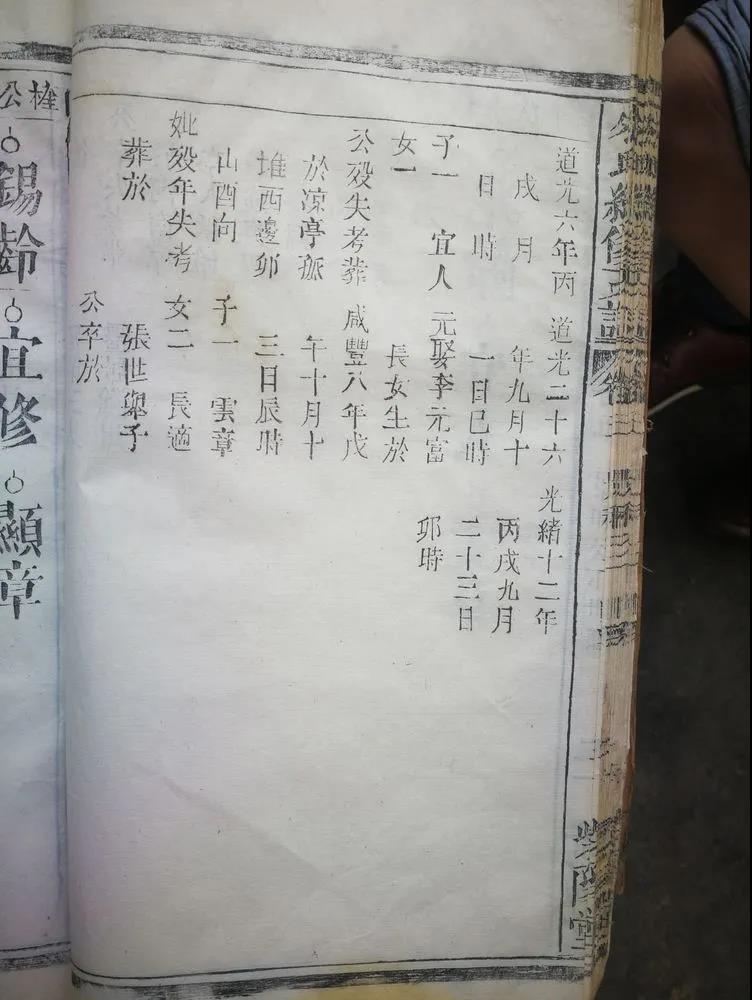 道光六年丙
戌月
日時
子一 宜人
女一
公歿失考葬
於凉亭孤
堆西邊卯
山酉向
妣歿年失考
葬於
道光二十六
年九月十
一日巳時
元娶李元富
長女生於
咸豐八年戊
午十月十
三日辰時
子一 雲章
女二 長適
張世與子
公卒於
光緒十二年
丙戌九月
二十三日
卯時
紫陽堂
錫齡 宜修 顯章